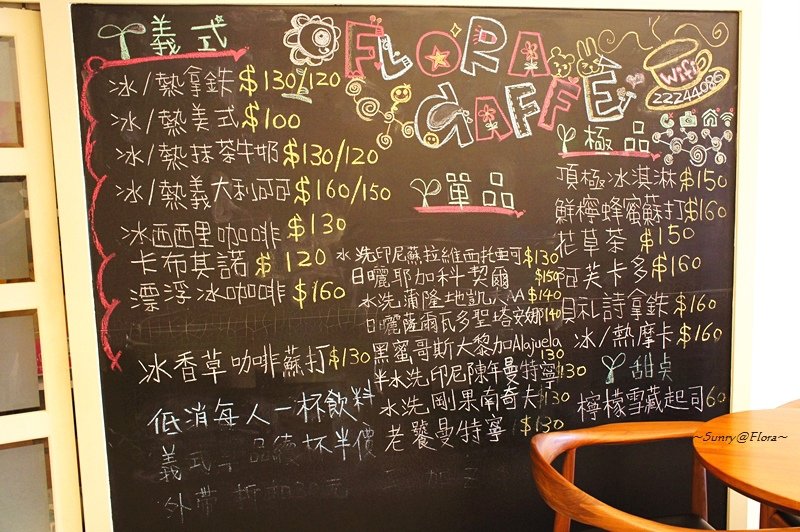 FLORA
CAFFÉ
Wifi
22244086
義式
冰/熱拿鉄 $130/120
冰/熱美式 $100
冰/熱抹茶牛奶 $130/120
冰/熱義大利可可 $160/150
冰西西里咖啡 $130
卡布其諾 $120
漂浮冰咖啡 $160
冰香草咖啡蘇打 $130
低消每人一杯飲料
義式
杯半價
外帶
單品
水洗印尼蘇拉維西托亚可 $130
日曬耶加科契爾 $150
水洗蒲隆地凱 AA $140
日曬薩爾瓦多聖塔安娜 140
黑蜜哥斯大黎加Alajuela 130
半水洗印尼陳年曼特寧 130
水洗剛果南奇卡 $130
老饕曼特寧 $130
極品
頂極冰淇淋 $150
鮮檸蜂蜜蘇打 $160
花草茶 $150
阿芙卡多 $160
貝礼詩拿鉄 $160
冰/熱摩卡 $160
甜点
檸檬雪藏起司 60
~Sunry@Flora~